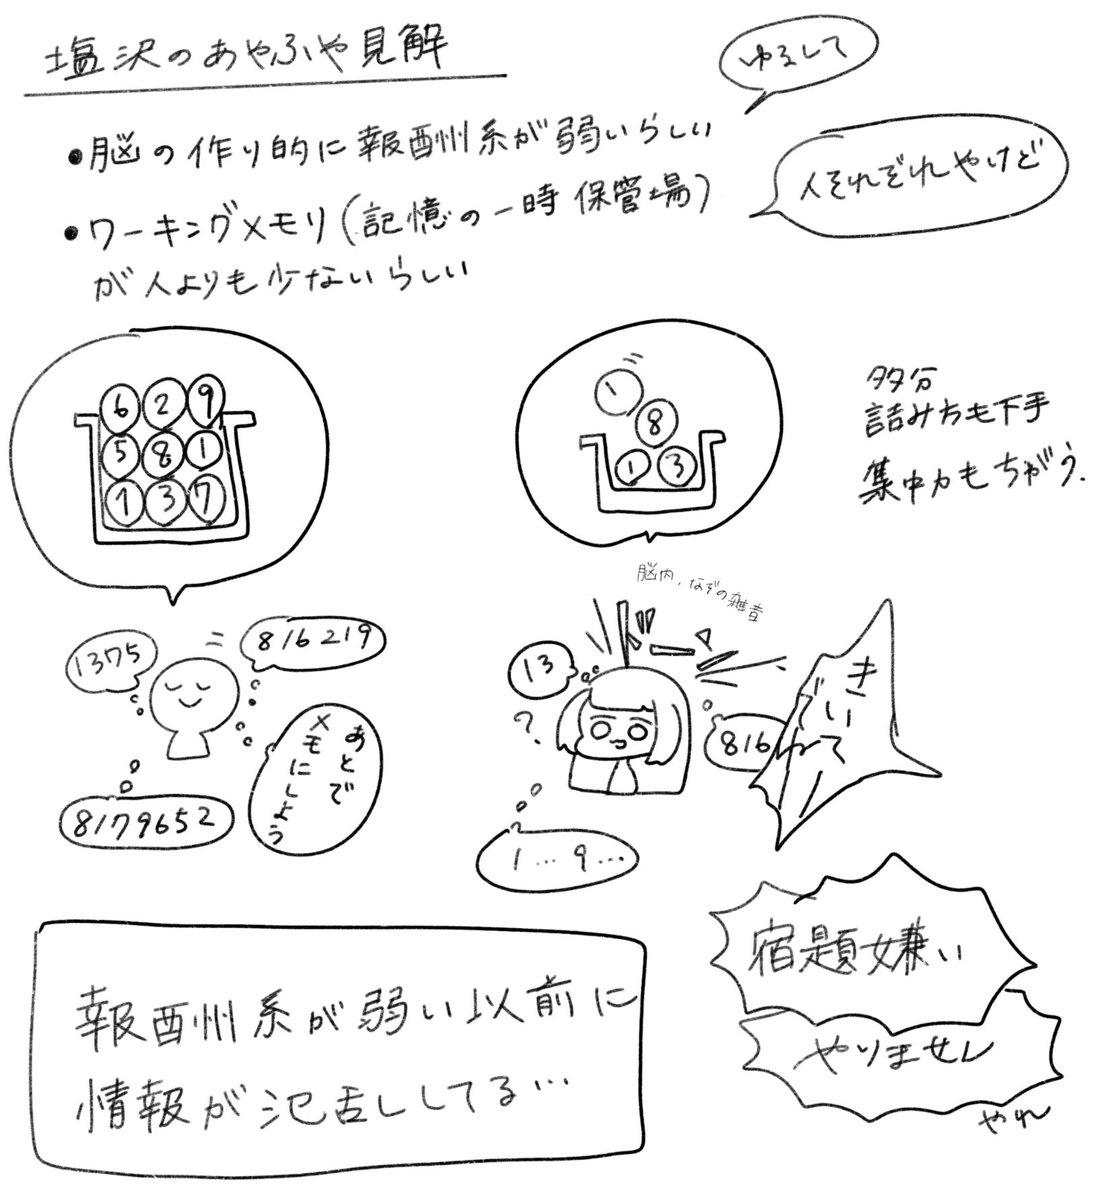 塩沢のあやふや見解
ゆるして
•脳の作り的に報酬系が弱いらしい
人それぞれやけど
•ワーキングメモリ(記憶の一時保管場)
が人よりも少ないらしい
6 2 9
5 8 1
1 3 7
1
8
1 3
多分
詰み方も下手
集中力もちがう.
脳内、なぞの雑音
1375
816219
あとで
メモにしよう
8179652
13
?
816
1…9…
宿題嫌い
やりません
やれ
報酬系が弱い以前に
情報が氾乱してる…